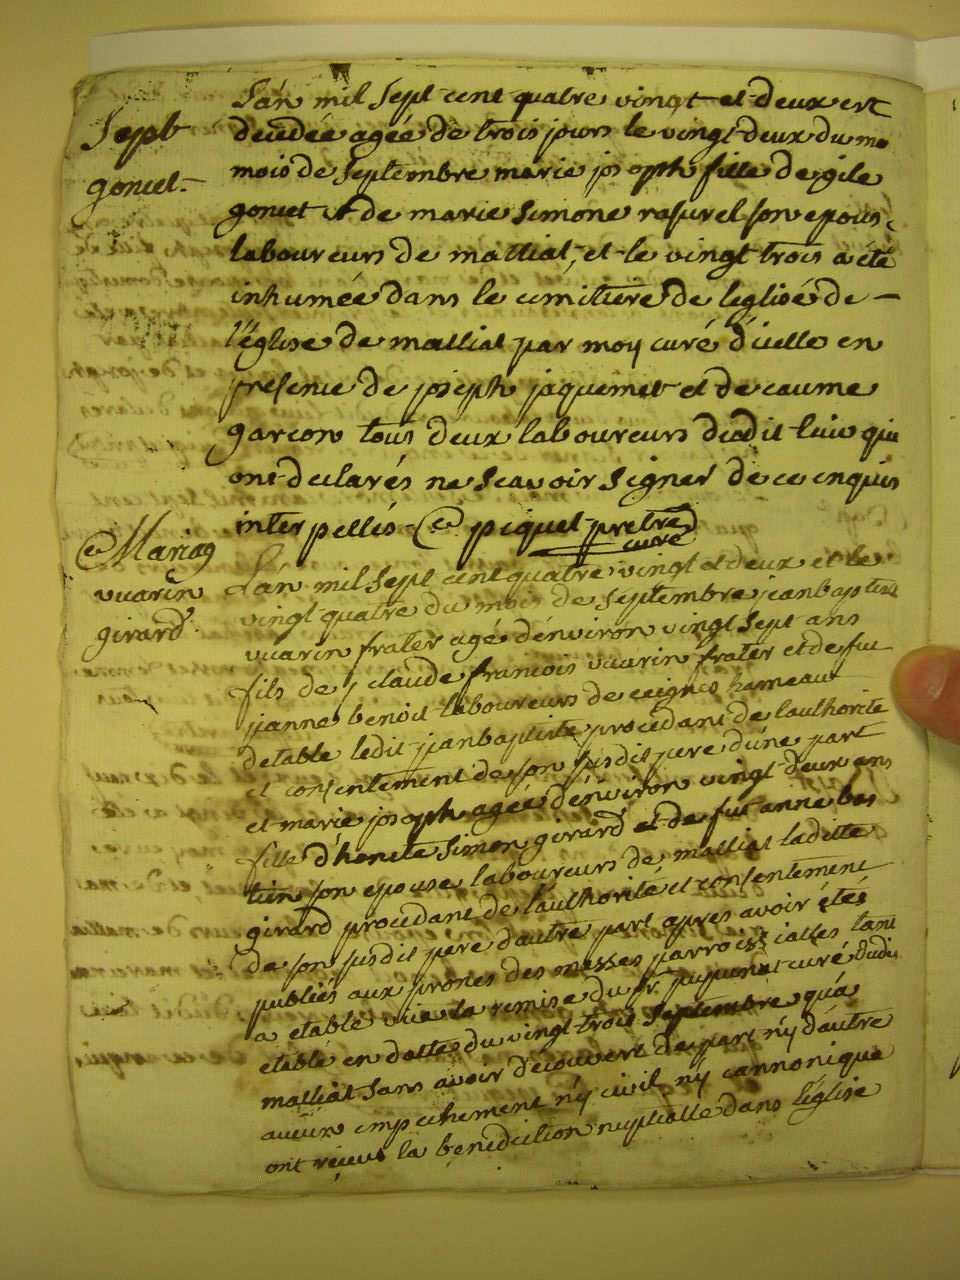 Sepb
goncet
L'an mil sept cent quatre vingt et deux est
decedée agée de trois jours le vingt deux du mo
mois de septembre marie joseph fille de gile
goncet et de marie simone rasurel son epouse
laboureurs de malliat, et le vingt trois a été
inhumée dans le cimitiere de leglise de
l'église de malliat par moy curé d'icelle en
presence de joseph jaquemet et de caume
garcon tous deux laboureurs dudit lieu qui
ont declarés ne scavoir signer de ce enquis
interpellés piquet pretre
curé
Mariag
vuarin
girard
L'an mil sept cent quatre vingt et deux et le
vingt quatre du mois de septembre jeanbaptiste
vuarin frater agé d'environ vingt sept ans
fils de claude francois vuarin frater et de fue
jeanne benoit laboureurs de ceignes hameau
detable ledit jeanbaptiste procedant de lauthorité
et consentement de son susdit pere d'une part
et marie joseph agée d'environ vingt deux ans
fille d'honete simon girard et de fue anne bas
tien son epouse laboureurs de malliat laditte
girard procedant de l'authorité et consentement
de son susdit pere d'autre part apres avoir étés
publiés aux prones des messes parroissialles tant
a etable vue la remise du sr. curé dudi
etable en datte du vingt trois septembre qu'a
malliat sans avoir découvert de part n'y d'autre
aucun empechement n'y civil n'y cannonique
ont reçeus la benediction nuptialle dans l'église